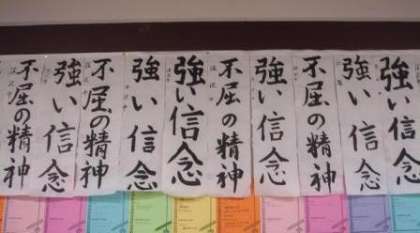 強い信念
強い信念
不屈の精神
強い信念
不屈の精神
強い信念
強い信念
不屈の精神
強い信念
不屈の精神